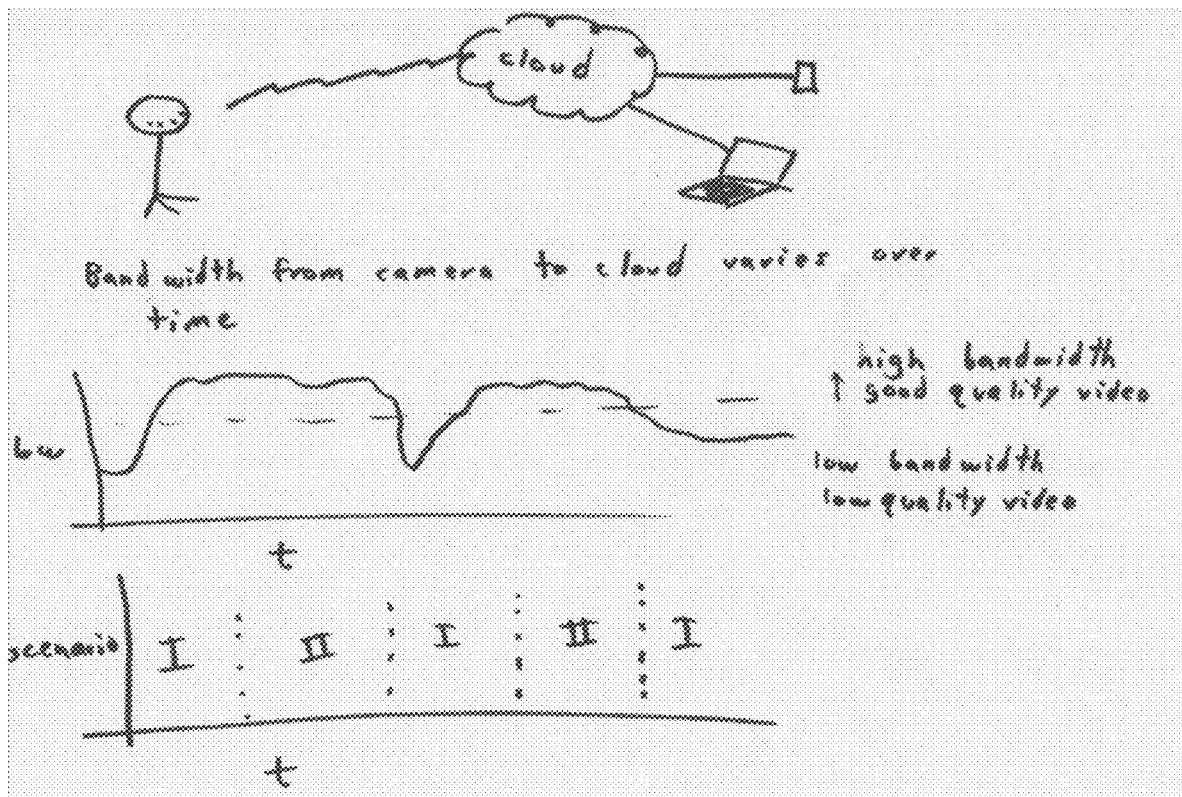 cloud
Bandwidth from camera to cloud varies over
time
high bandwidth
↑ good quality video
bw
low bandwidth
low quality video
t
scenario
I
II
I
II
I
t